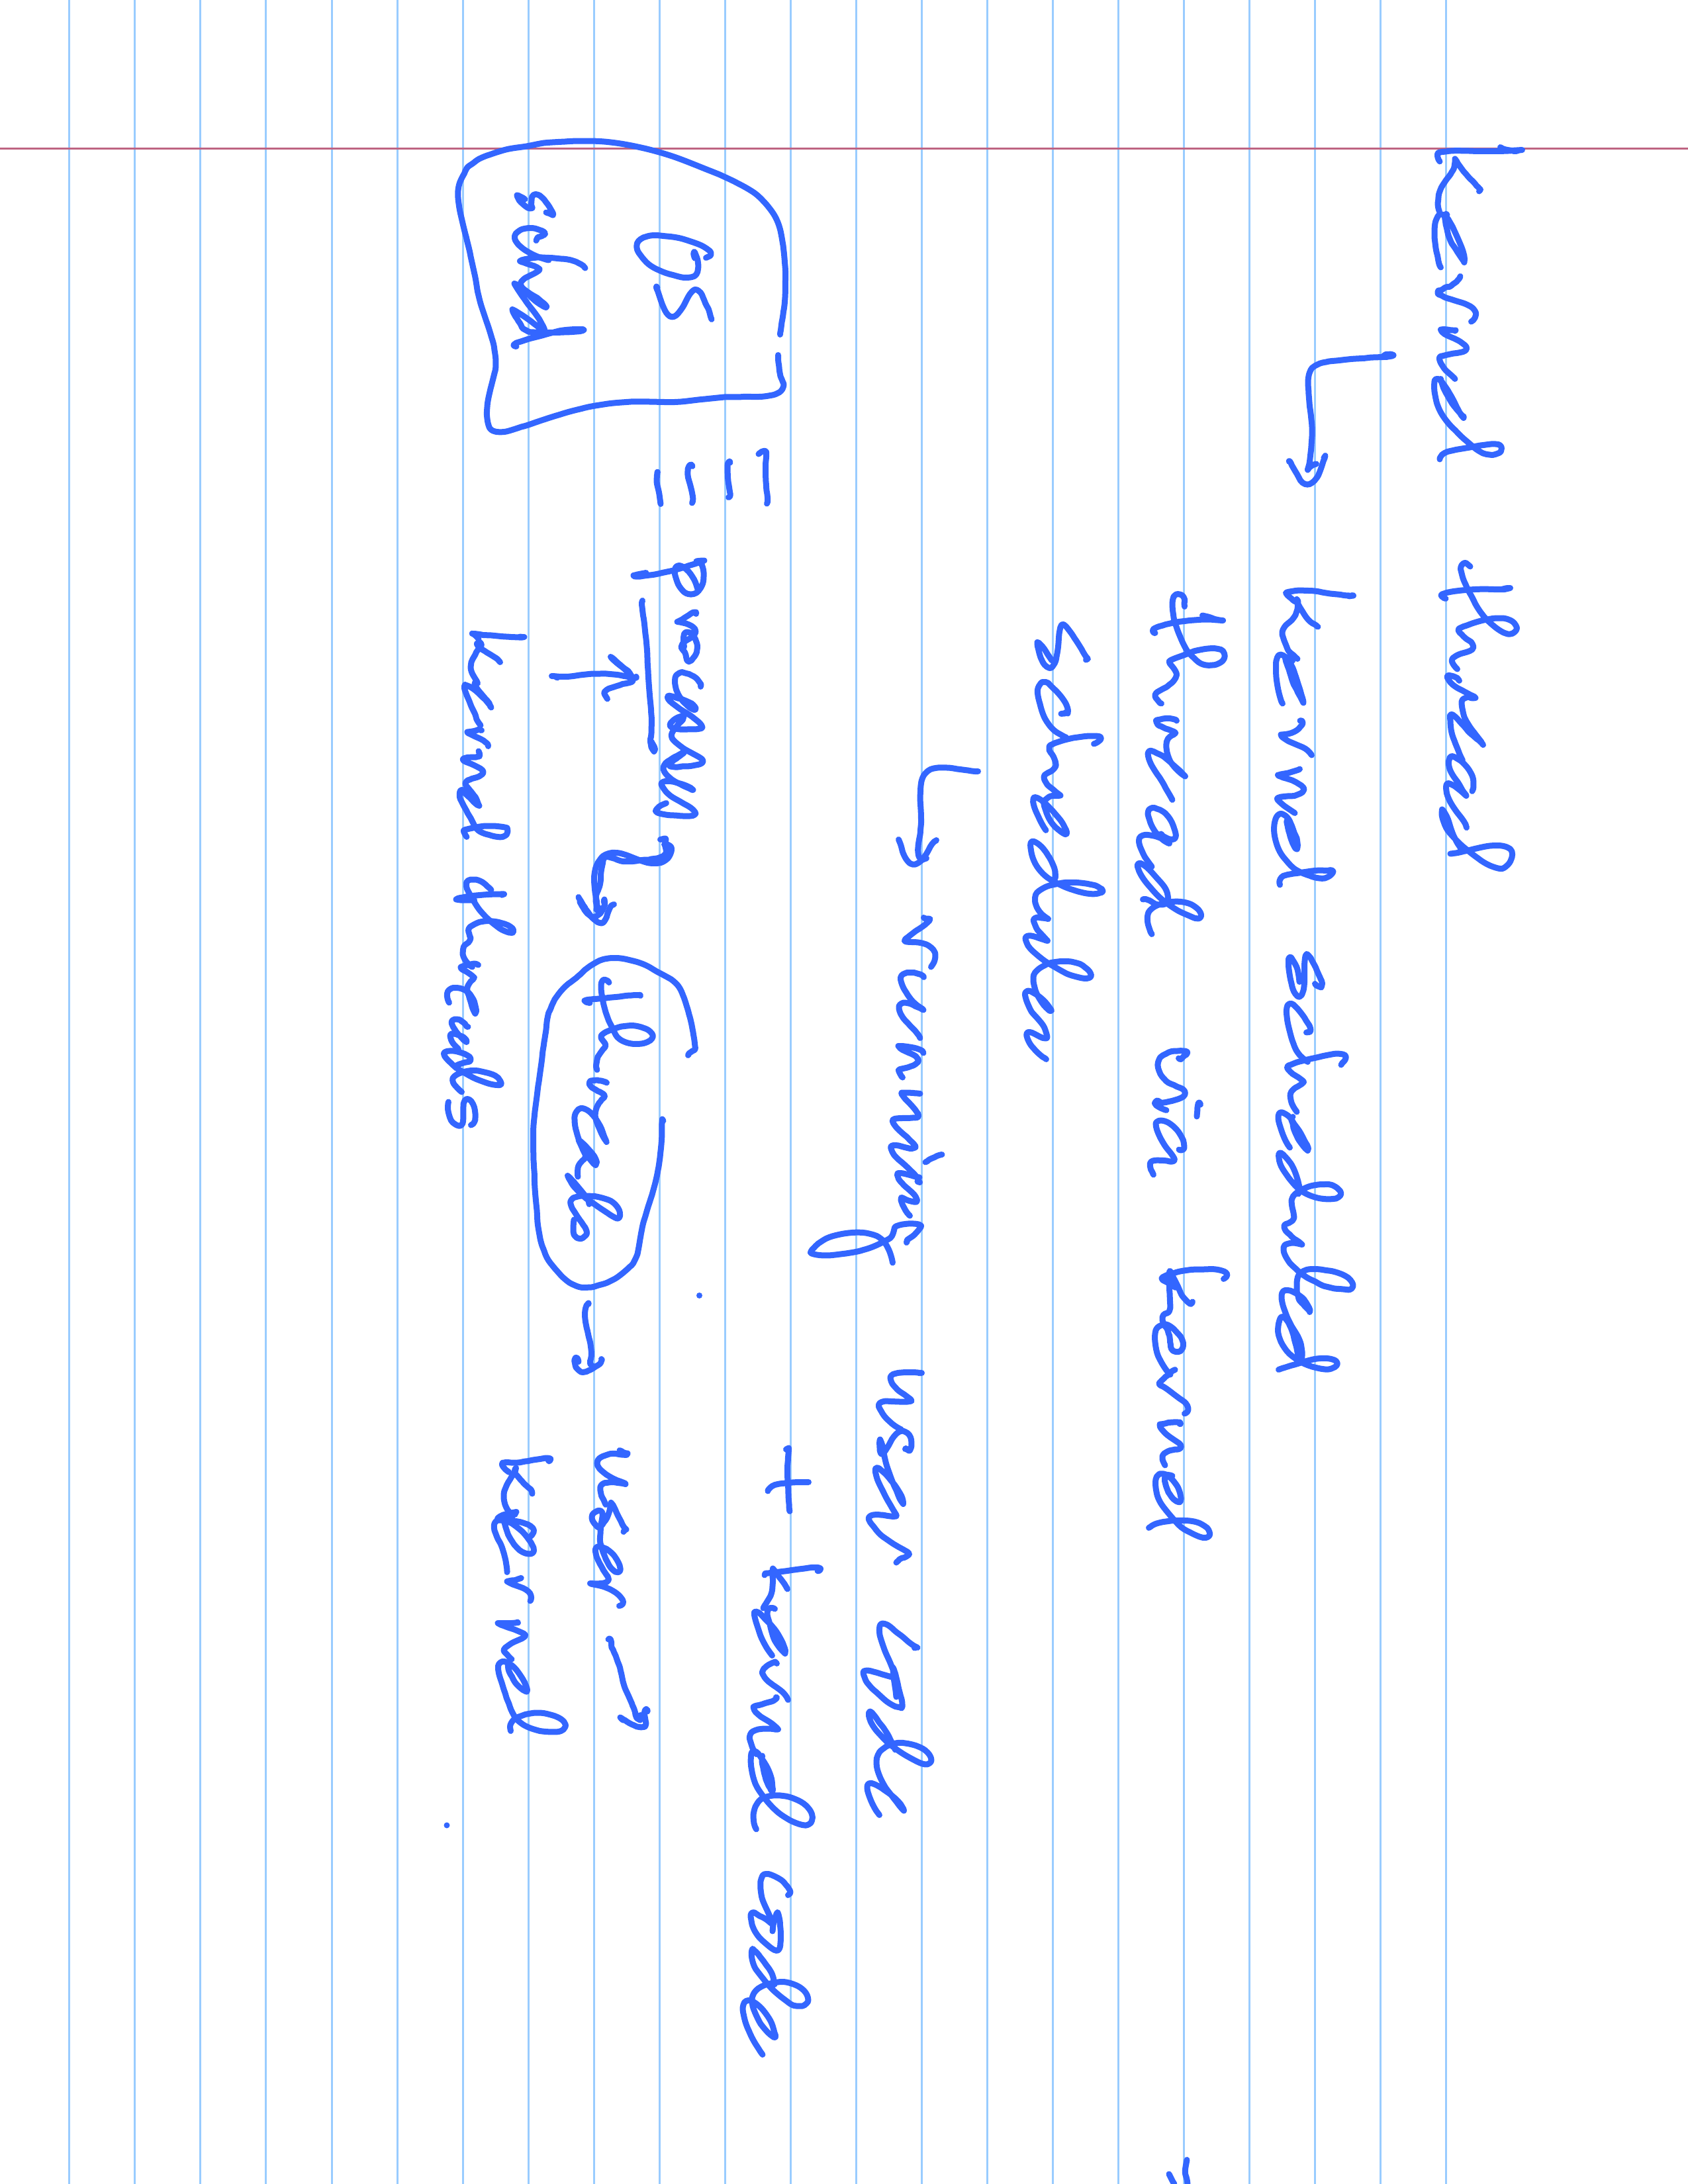 Kernel thread
kernel scheduled
thread via kernel
scheduler
running user code
+ kernel code
OS
sched
process
threads
user
kernel
kernel threads